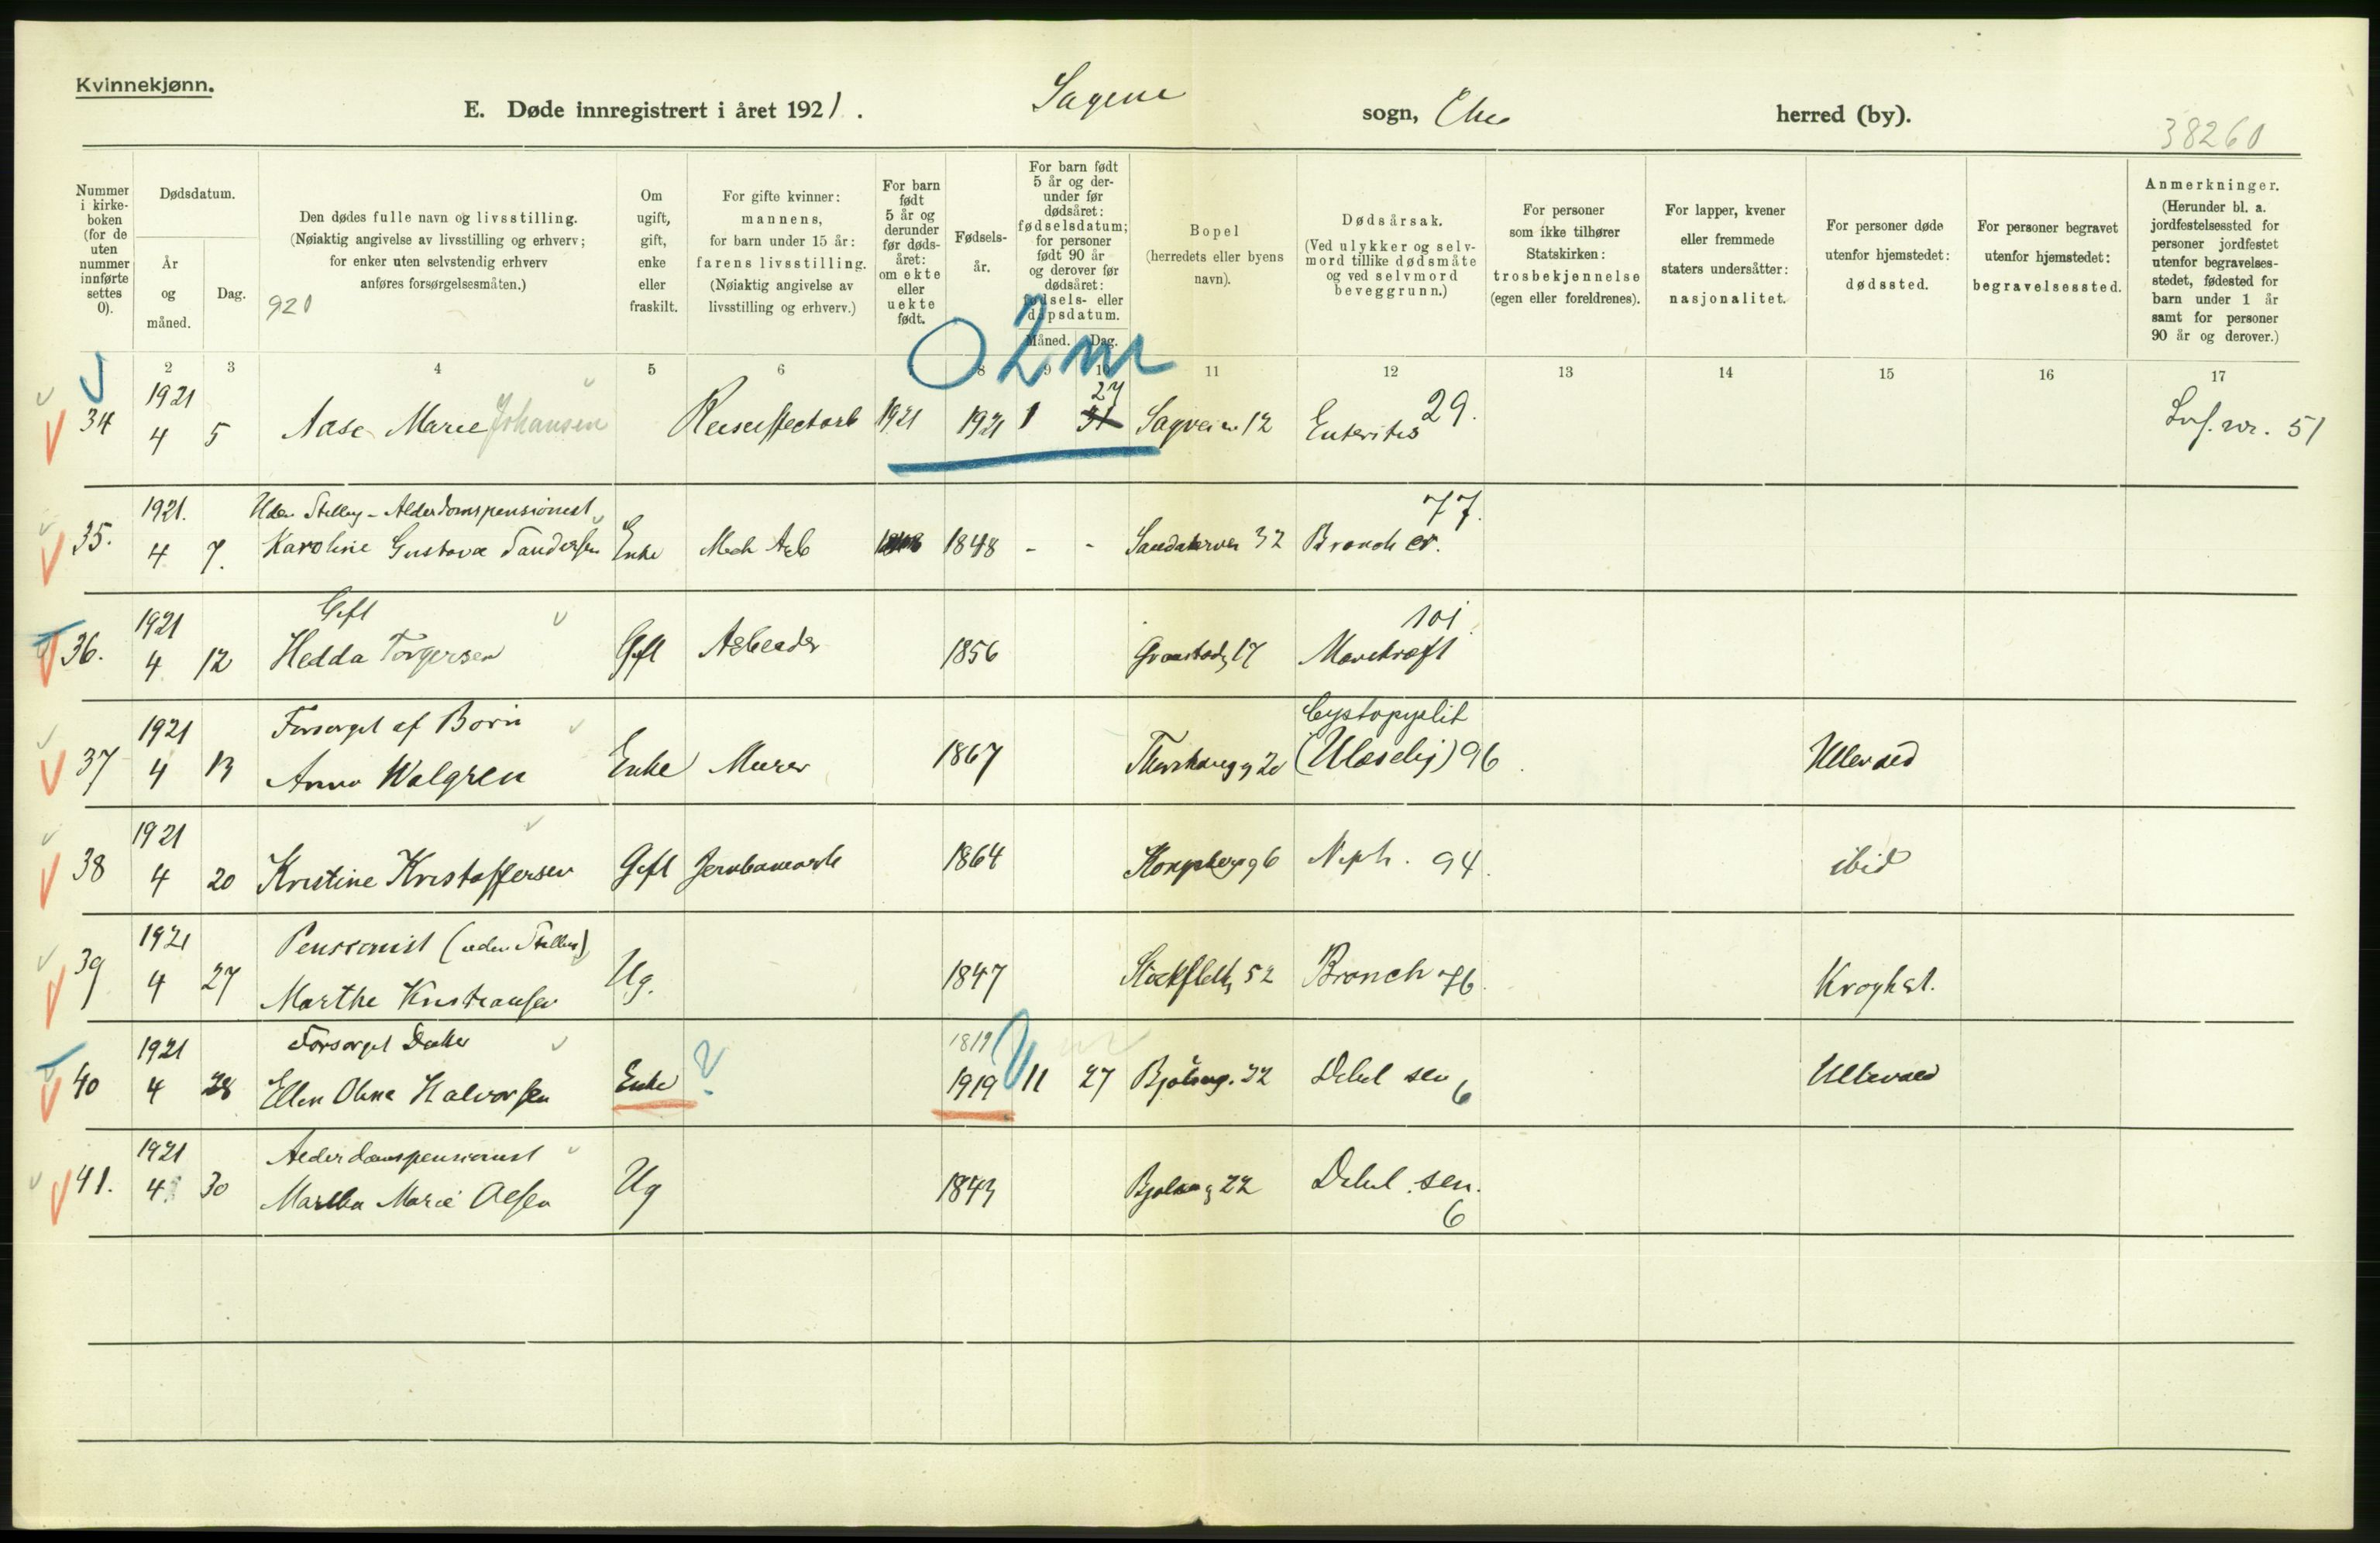 Kvinnekjønn.
E. Døde innregistrert i året 1921. Sagene sogn, Chr herred (by).
38260
Nummer i kirke-boken (for de uten nummer innførte settes 0).
Dødsdatum.
År og måned.
Dag.
Den dødes fulle navn og livsstilling.
(Nøiaktig angivelse av livsstilling og erhverv;
for enker uten selvstendig erhverv
anføres forsørgelsesmåten.)
920
Om ugift, gift, enke eller fraskilt.
For gifte kvinner: mannens,
for barn under 15 år:
farens livsstilling.
(Nøiaktig angivelse av
livsstilling og erhverv.)
For barn født 5 år og derunder før døds-året: om ekte eller uekte født.
Fødsels-år.
For barn født 5 år og der-under før dødsåret: fødselsdatum; for personer født 90 år og derover før dødsåret: fødsels- eller dåpsdatum.
Måned. Dag.
Bopel
(herredets eller byens
navn).
Dødsårsak.
(Ved ulykker og selv-
mord tillike dødsmåte
og ved selvmord
beveggrunn.)
For personer
som ikke tilhører
Statskirken:
trosbekjennelse
(egen eller foreldrenes).
For lapper, kvener
eller fremmede
staters undersåtter:
nasjonalitet.
For personer døde
utenfor hjemstedet:
dødssted.
For personer begravet
utenfor hjemstedet:
begravelsessted.
Anmerkninger.
(Herunder bl. a.
jordfestelsessted for
personer jordfestet
utenfor begravelses-
stedet, fødested for
barn under 1 år
samt for personer
90 år og derover.)
0 2 m
2 3 4 5 6 8 9 10 11 12 13 14 15 16 17
34 1921 4 5 Aase Marie Johansen 1921 1921 1 31 27 Sagveien 12 Enterites 29. nr. 51
35. 1921. 4 7. Uden Stilling - Alderdomspensionist
Karoline Gustava Sandersen Enke Mek Arb 1848 - - 32 Bronch cr. 77.
36. 1921 4 12 Gift
Hedda Torgersen Gift Arbeider 1856 17 Mavekræft 101.
37 1921 4 13 Forsørget af Børn
Anna Walgren Enke Murer 1867 Cystopyelit
(Ulæselig) 96 Ullevaal
38 1921 4 20 Kristine Kristoffersen Gift Jernbanearb 1864 Neph. 94. ibid
39 1921 4 27 Pensionist (uden Stilling)
Marthe Kristiansen Ug. 1847 Stockfleth 52 Bronch 76. Kroghst.
40 1921 4 28 Forsørget Datter
Ellen Oline Halvorsen Enke ? 1819
1919 11 27 Bjølseng. 22 Debil sen 6 Ullevaal
41. 1921 4 30 Alderdomspensionist
Martha Marie Olsen Ug 1843 22 Debil. sen. 6